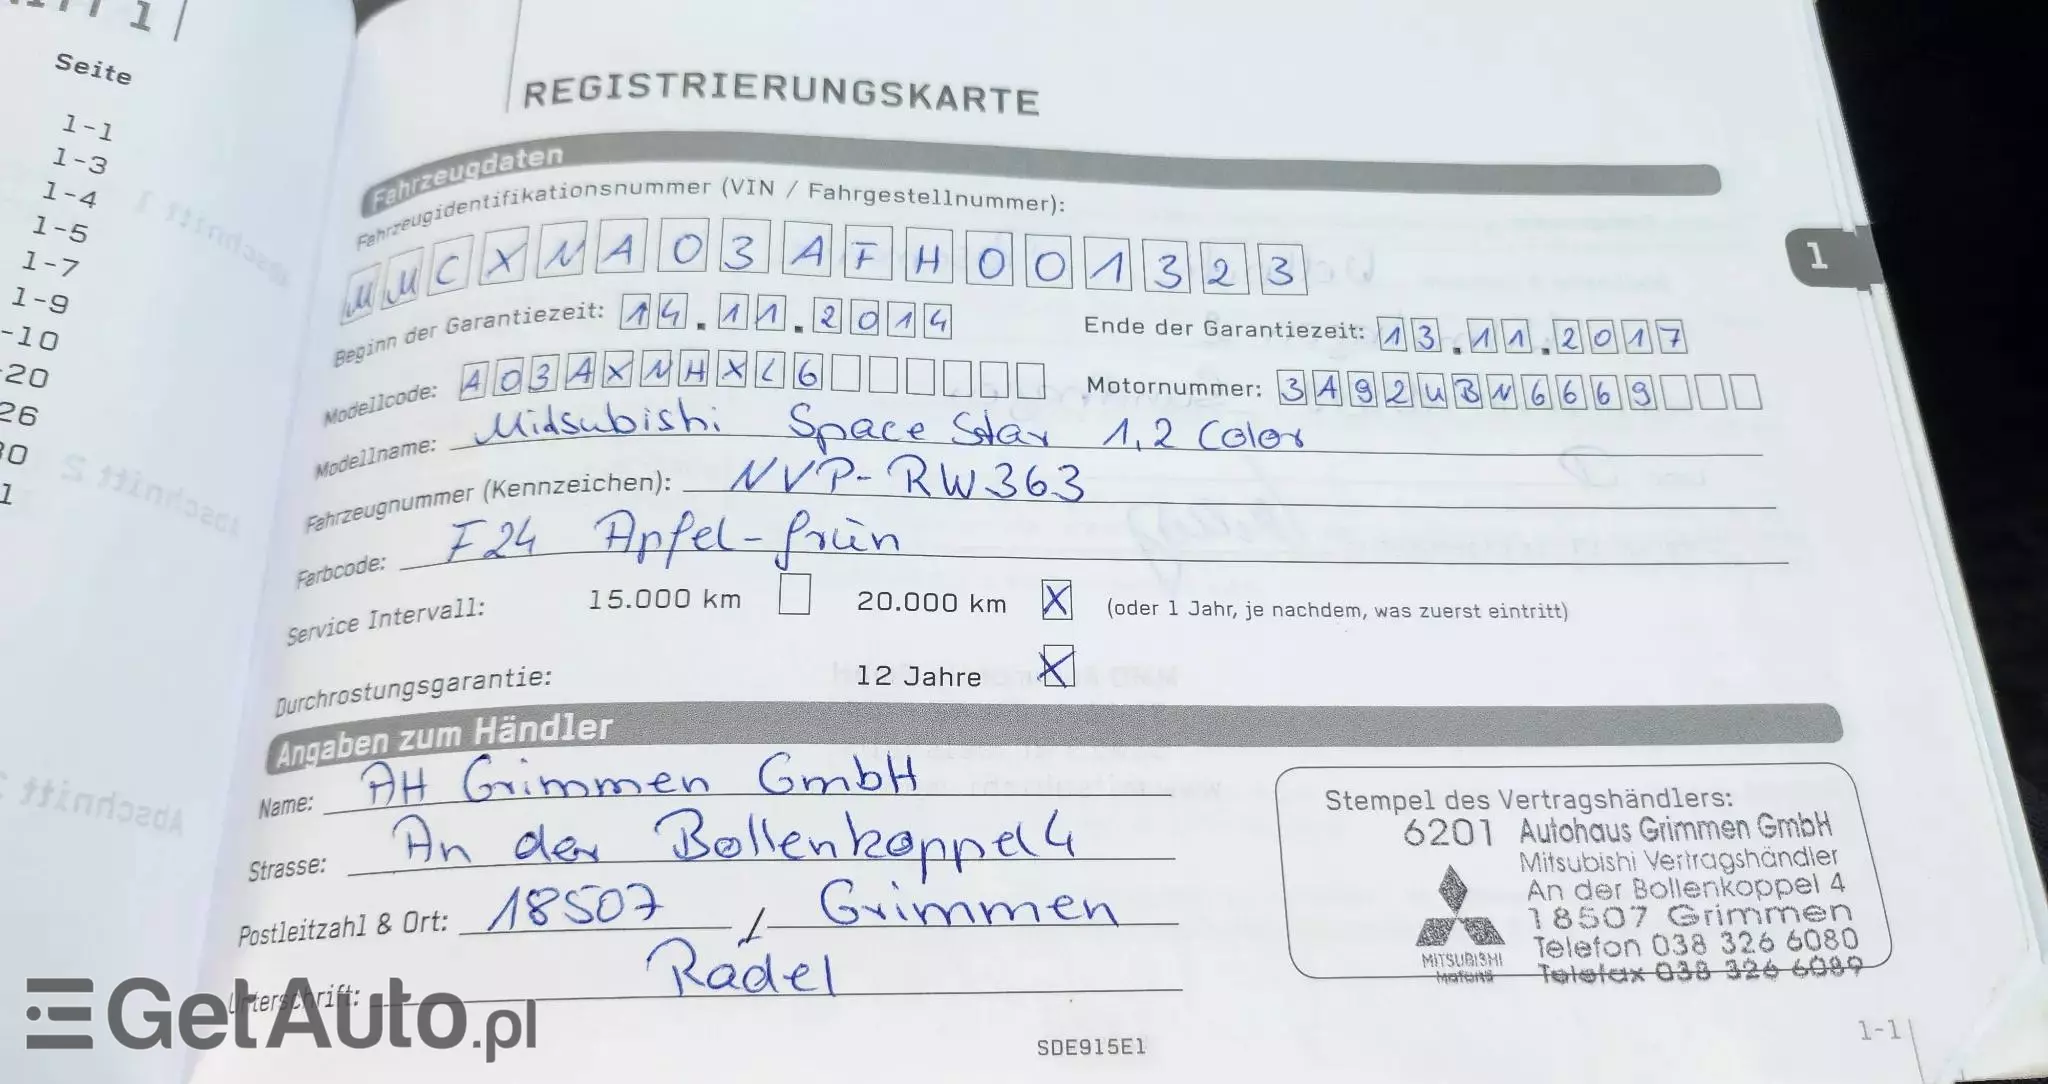 1
Seite
1-1
1-3
1-4
1-5
1-7
1-9
-10
-20
26
30
1
REGISTRIERUNGSKARTE
Fahrzeugdaten
Fahrzeugidentifikationsnummer (VIN / Fahrgestellnummer):
MMCXNA03AFH001323
Beginn der Garantiezeit: 14.11.2014 Ende der Garantiezeit: 13.11.2017
Modellcode: A03AXNHXL6 Motornummer: 3A92UBN6669
Modellname: Midsubishi Space Star 1,2 Color
Fahrzeugnummer (Kennzeichen): NVP-RW363
Farbcode: F24 Apfel-grün
Service Intervall: 15.000 km 20.000 km X (oder 1 Jahr, je nachdem, was zuerst eintritt)
Durchrostungsgarantie: 12 Jahre X
1
Angaben zum Händler
Name: AH Grimmen GmbH
Strasse: An der Bollenkoppel 4
Postleitzahl & Ort: 18507 / Grimmen
Unterschrift: Radel
Stempel des Vertragshändlers:
6201 Autohaus Grimmen GmbH
Mitsubishi Vertragshändler
An der Bollenkoppel 4
18507 Grimmen
Telefon 038 326 6080
Telefax 038 326 6089
MITSUBISHI
MOTORS
SDE915E1
1-1
GetAuto.pl